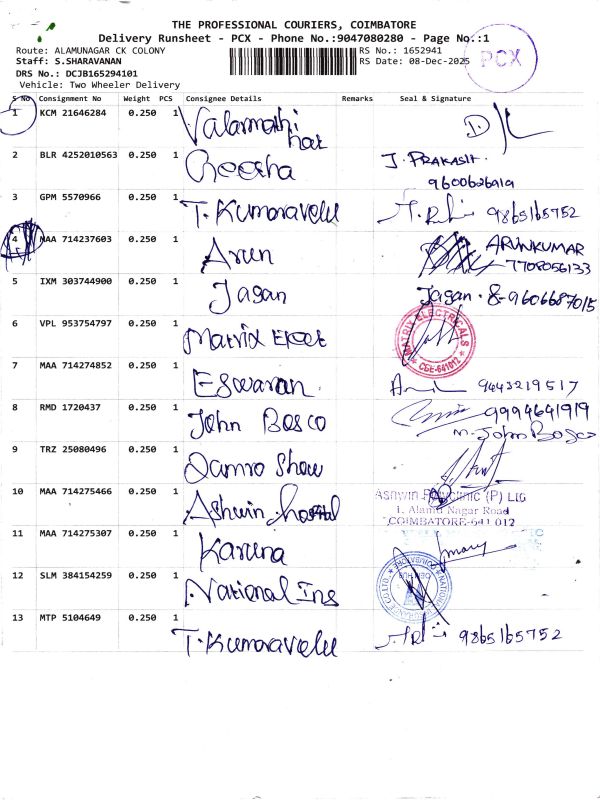 THE PROFESSIONAL COURIERS, COIMBATORE
Delivery Runsheet - PCX - Phone No.:9047080280 - Page No.:1
Route: ALAMUNAGAR CK COLONY RS No.: 1652941
Staff: S.SHARAVANAN RS Date: 08-Dec-2025
PCX
DRS No.: DCJB165294101
Vehicle: Two Wheeler Delivery
S No Consignment No Weight PCS Consignee Details Remarks Seal & Signature
1 KCM 21646284 0.250 1 Valarmathi
2 BLR 4252010563 0.250 1 Cheesha J. PRAKASH.
9600626919
3 GPM 5570966 0.250 1 T. Kumaravelu 9865165752
4 MAA 714237603 0.250 1 Arun ARUNKUMAR
7708056133
5 IXM 303744900 0.250 1 Jagan Jagan. 8-9606687015
6 VPL 953754797 0.250 1 Matrix Elect MATRIX ELECTRICALS CBE-641012
7 MAA 714274852 0.250 1 Eswaran 9443219517
8 RMD 1720437 0.250 1 John Bosco 9994641919
M. John Bosco
9 TRZ 25080496 0.250 1 Damro Show
10 MAA 714275466 0.250 1 Ashwin hospital ASHWIN POLYCLINIC (P) LTD
1. Alamu Nagar Road
COIMBATORE-641 012
11 MAA 714275307 0.250 1 Karuna mary
12 SLM 384154259 0.250 1 National Ins
13 MTP 5104649 0.250 1 T. Kumaravelu 9865165752